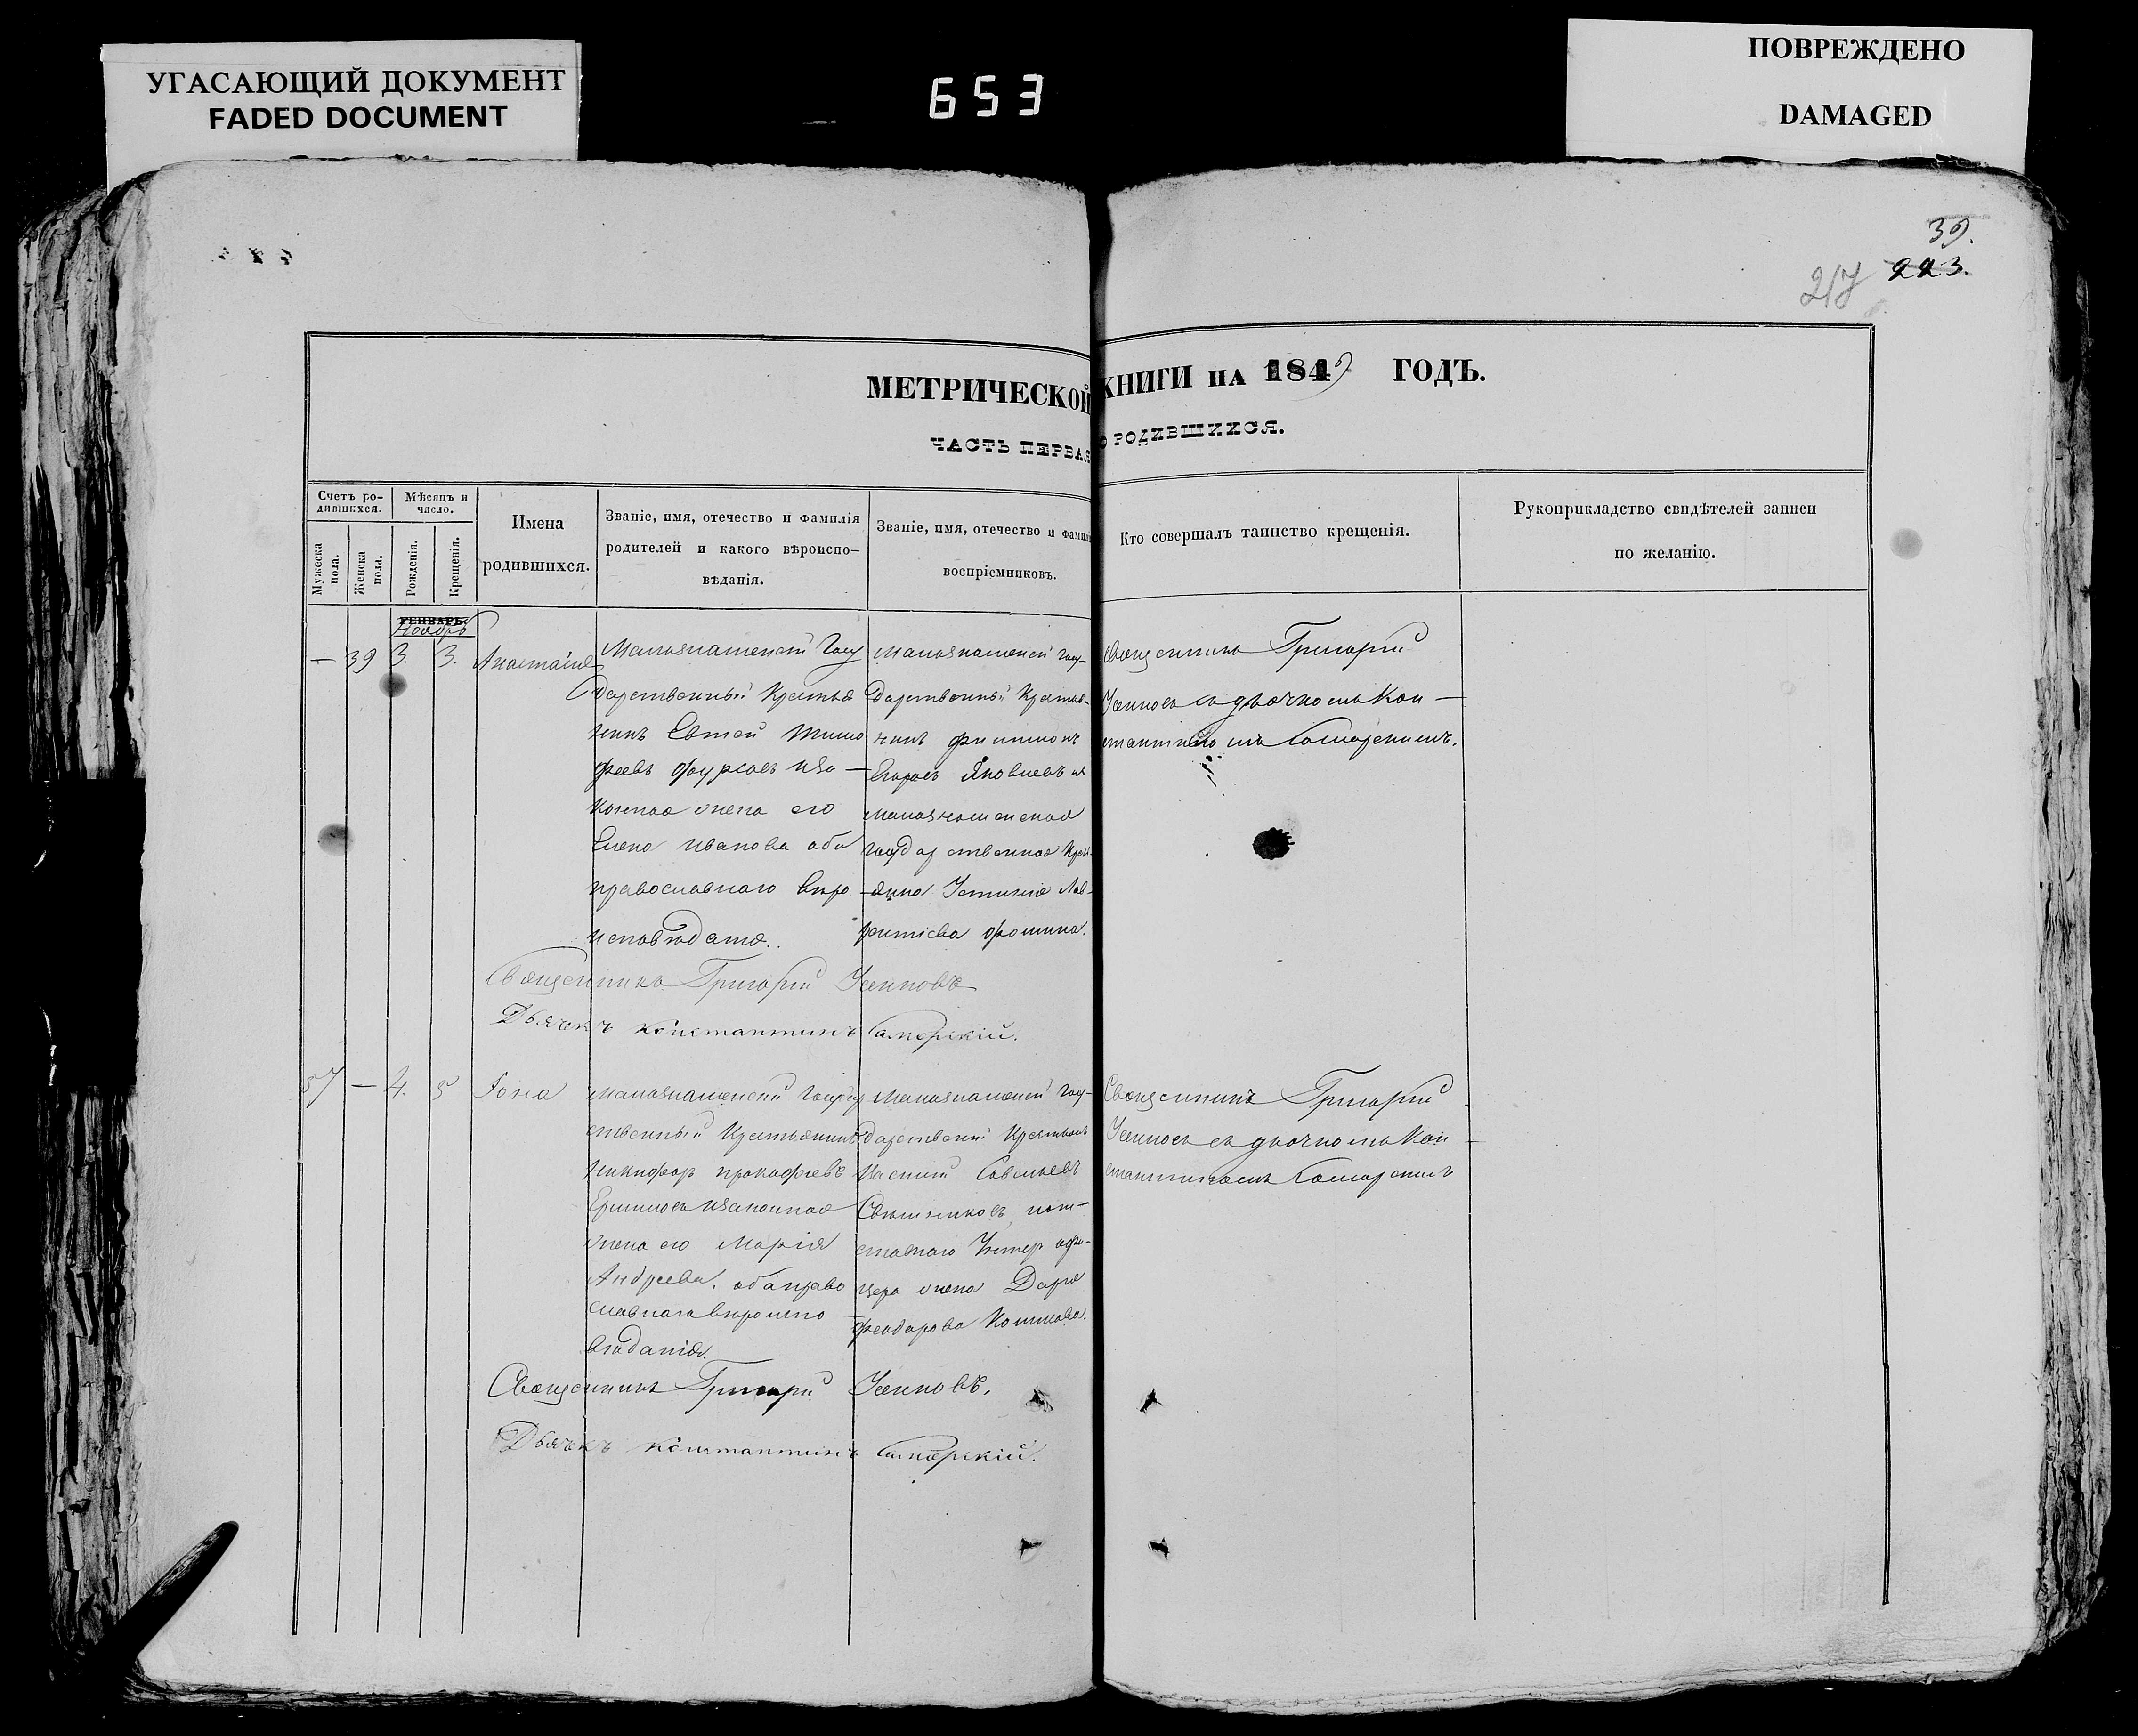 УГАСАЮЩИЙ ДОКУМЕНТ
FADED DOCUMENT
653
ПОВРЕЖДЕНО
DAMAGED
39.
217 223.
МЕТРИЧЕСКОЙ КНИГИ НА 1849 ГОДЪ.
ЧАСТЬ ПЕРВАЯ О РОДИВШИХСЯ.
Счетъ родившихся.
Мужеска пола.
Женска пола.
Мѣсяцъ и число.
Рожденія.
Крещенія.
Имена
родившихся.
Званіе, имя, отечество и фамилія
родителей и какого вѣроиспо-
вѣданія.
Званіе, имя, отечество и фамилія
воспріемниковъ.
Кто совершалъ таинство крещенія.
Рукоприкладство свидѣтелей записи
по желанію.
ГЕНВАРЬ.
Ноябрь
— 39 3. 3. Анастасія
Малознаменской Госу
дарственный Крестья
нинъ Евтей Тимо
феевъ изо —
конная жена его
Елена Иванова оба
православнаго вѣро
исповѣданія.
Малознаменской Госу-
дарственный Крестья-
нинъ Филимонъ
Яковлевъ и
малознаменская
государственная Крес-
янка Устинія Лав-
рентіева Фомина.
Священникъ Григорій
съ дьячкомъ Кон —
стантиномъ
Священникъ Григорій
Дьячекъ Константинъ
57 — 4. 5 Іона
Малознаменской Государ
ственный Крестьянинъ
Никифоръ Прокофьевъ
законная
жена его Марія
Андреева, оба право
славнаго вѣроиспо
вѣданія.
Малознаменской Госу-
дарственный Крестьян
Василій Савельевъ
от-
ставнаго Унтеръ офи-
цера жена Дарія
Феодорова
Священникъ Григорій
съ дьячкомъ Кон —
стантиномъ
Священникъ Григорій
Дьячекъ Константинъ